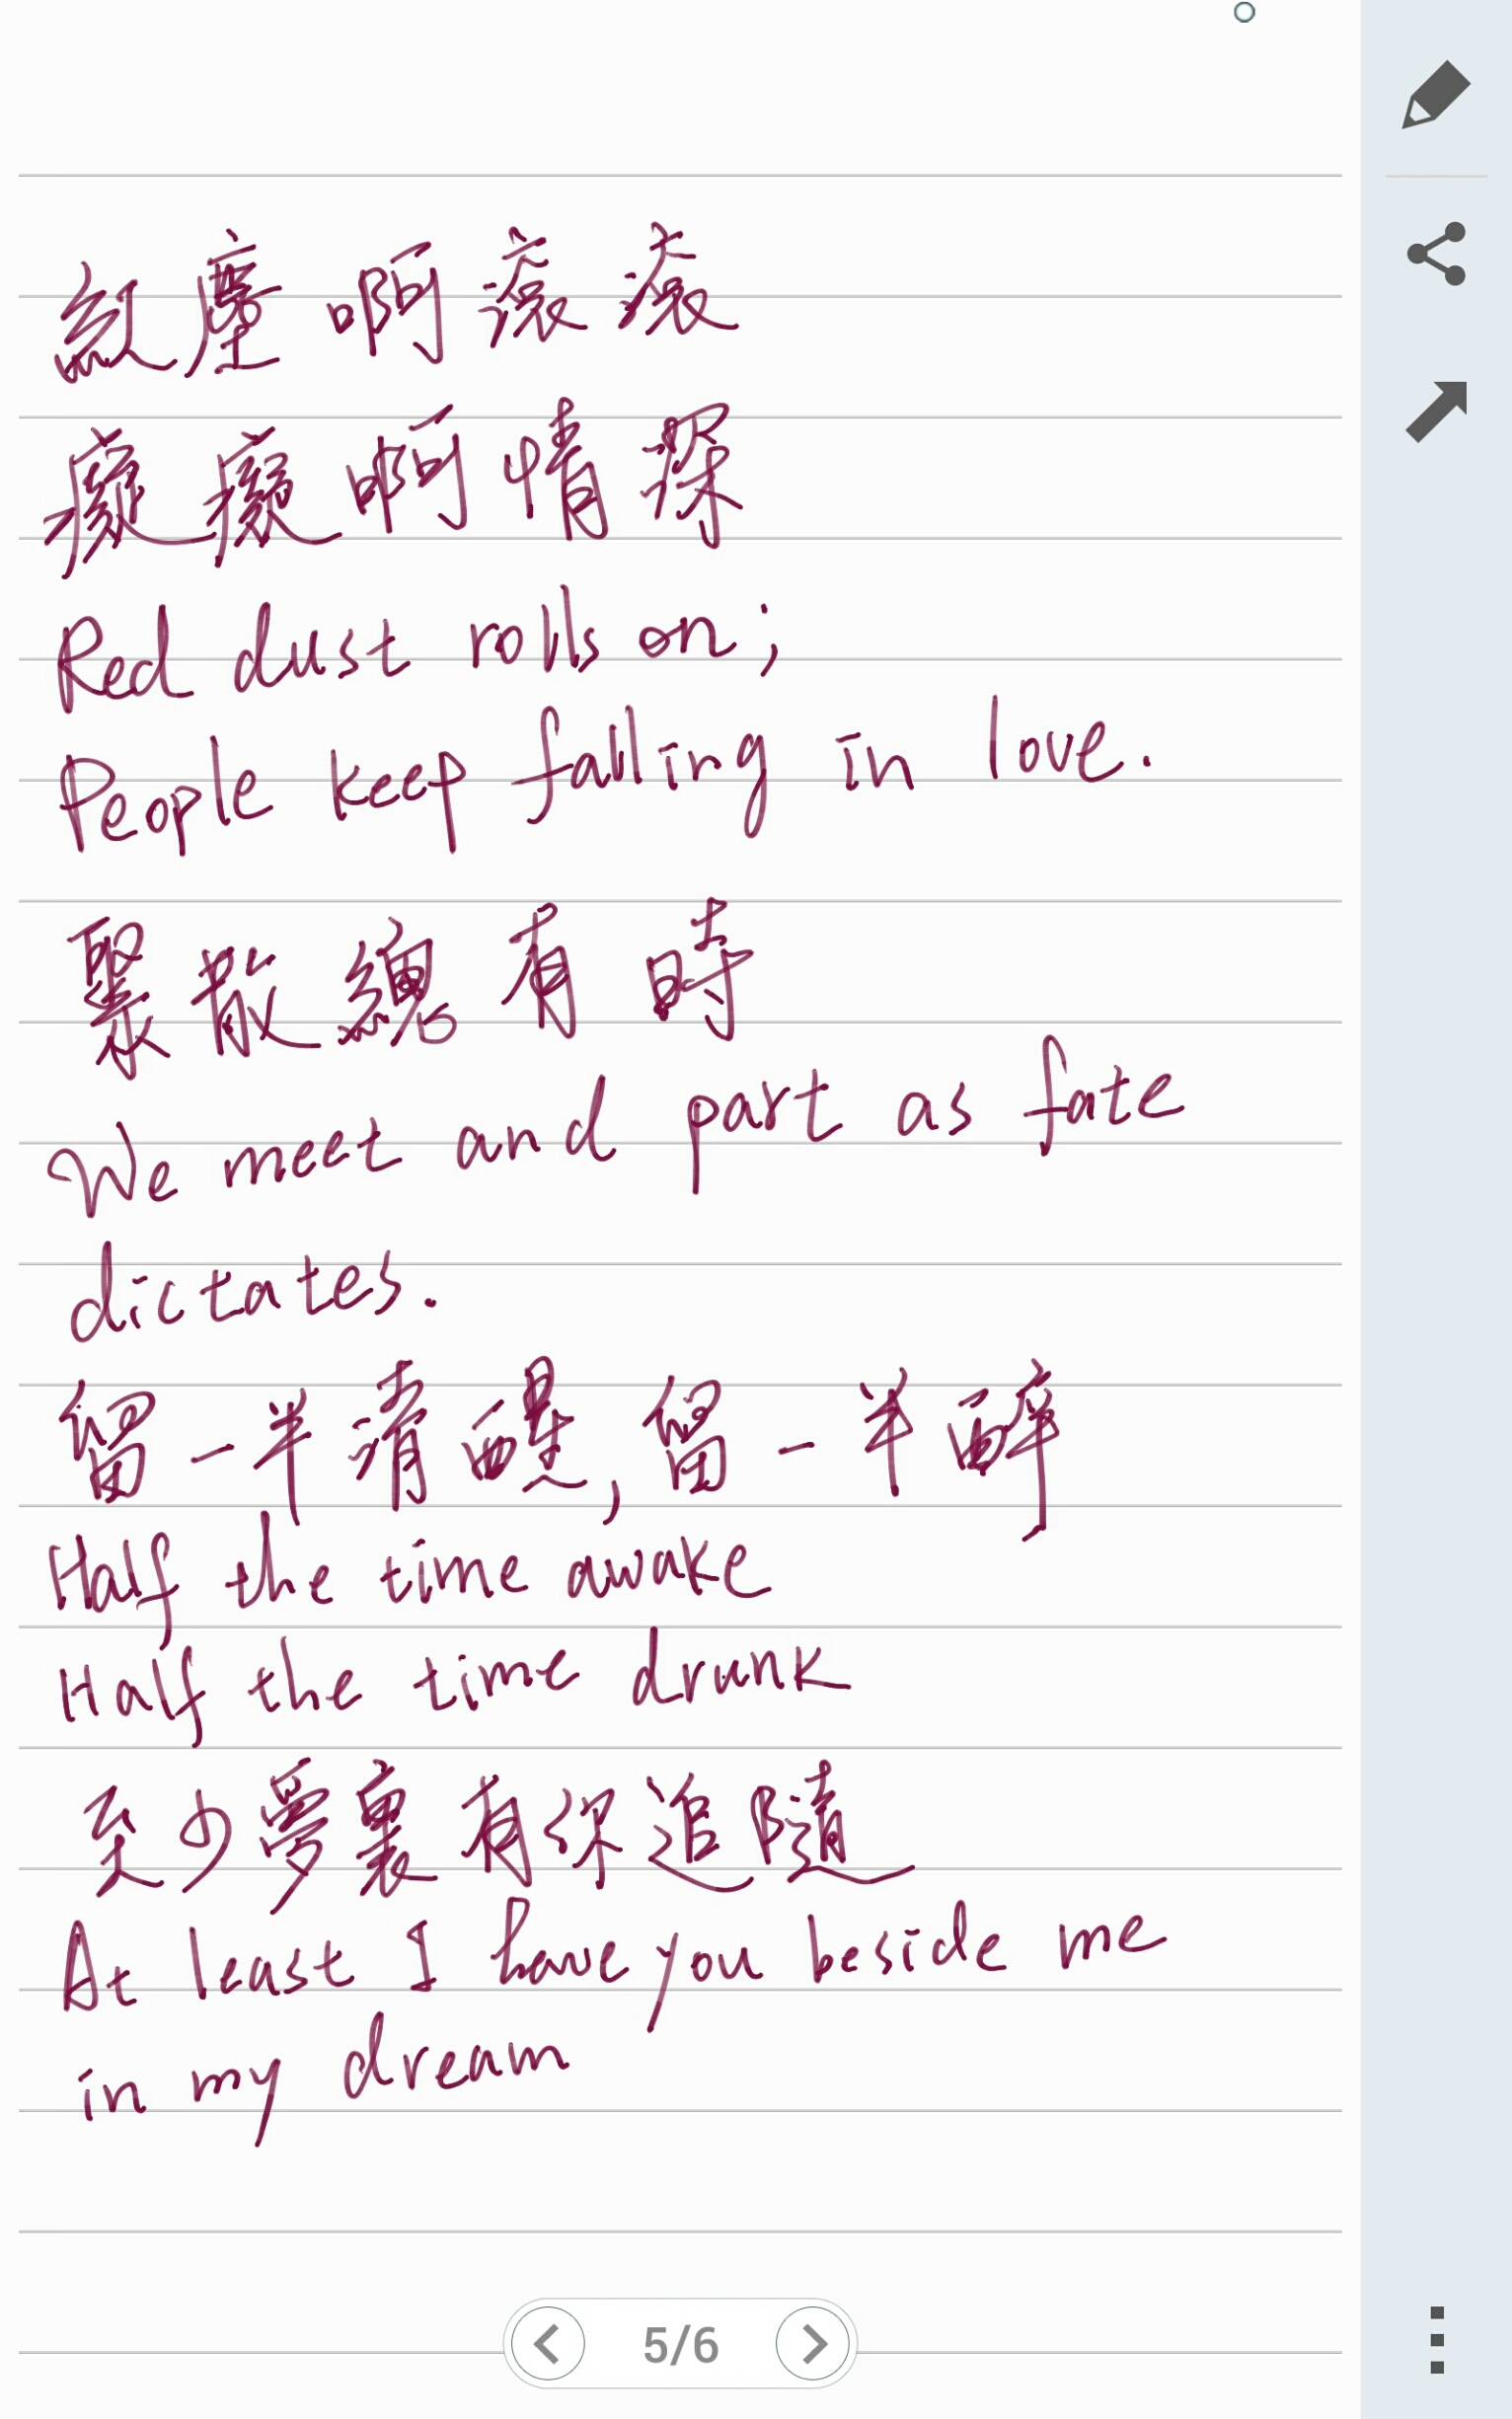 紅塵啊滾滾
癡癡啊情深
Red dust rolls on;
People keep falling in love.
聚散總有時
We meet and part as fate
dictates.
留一半清醒,留一半醉
Half the time awake
Half the time drunk
至少夢裏有你追隨
At least I have you beside me
in my dream
5/6